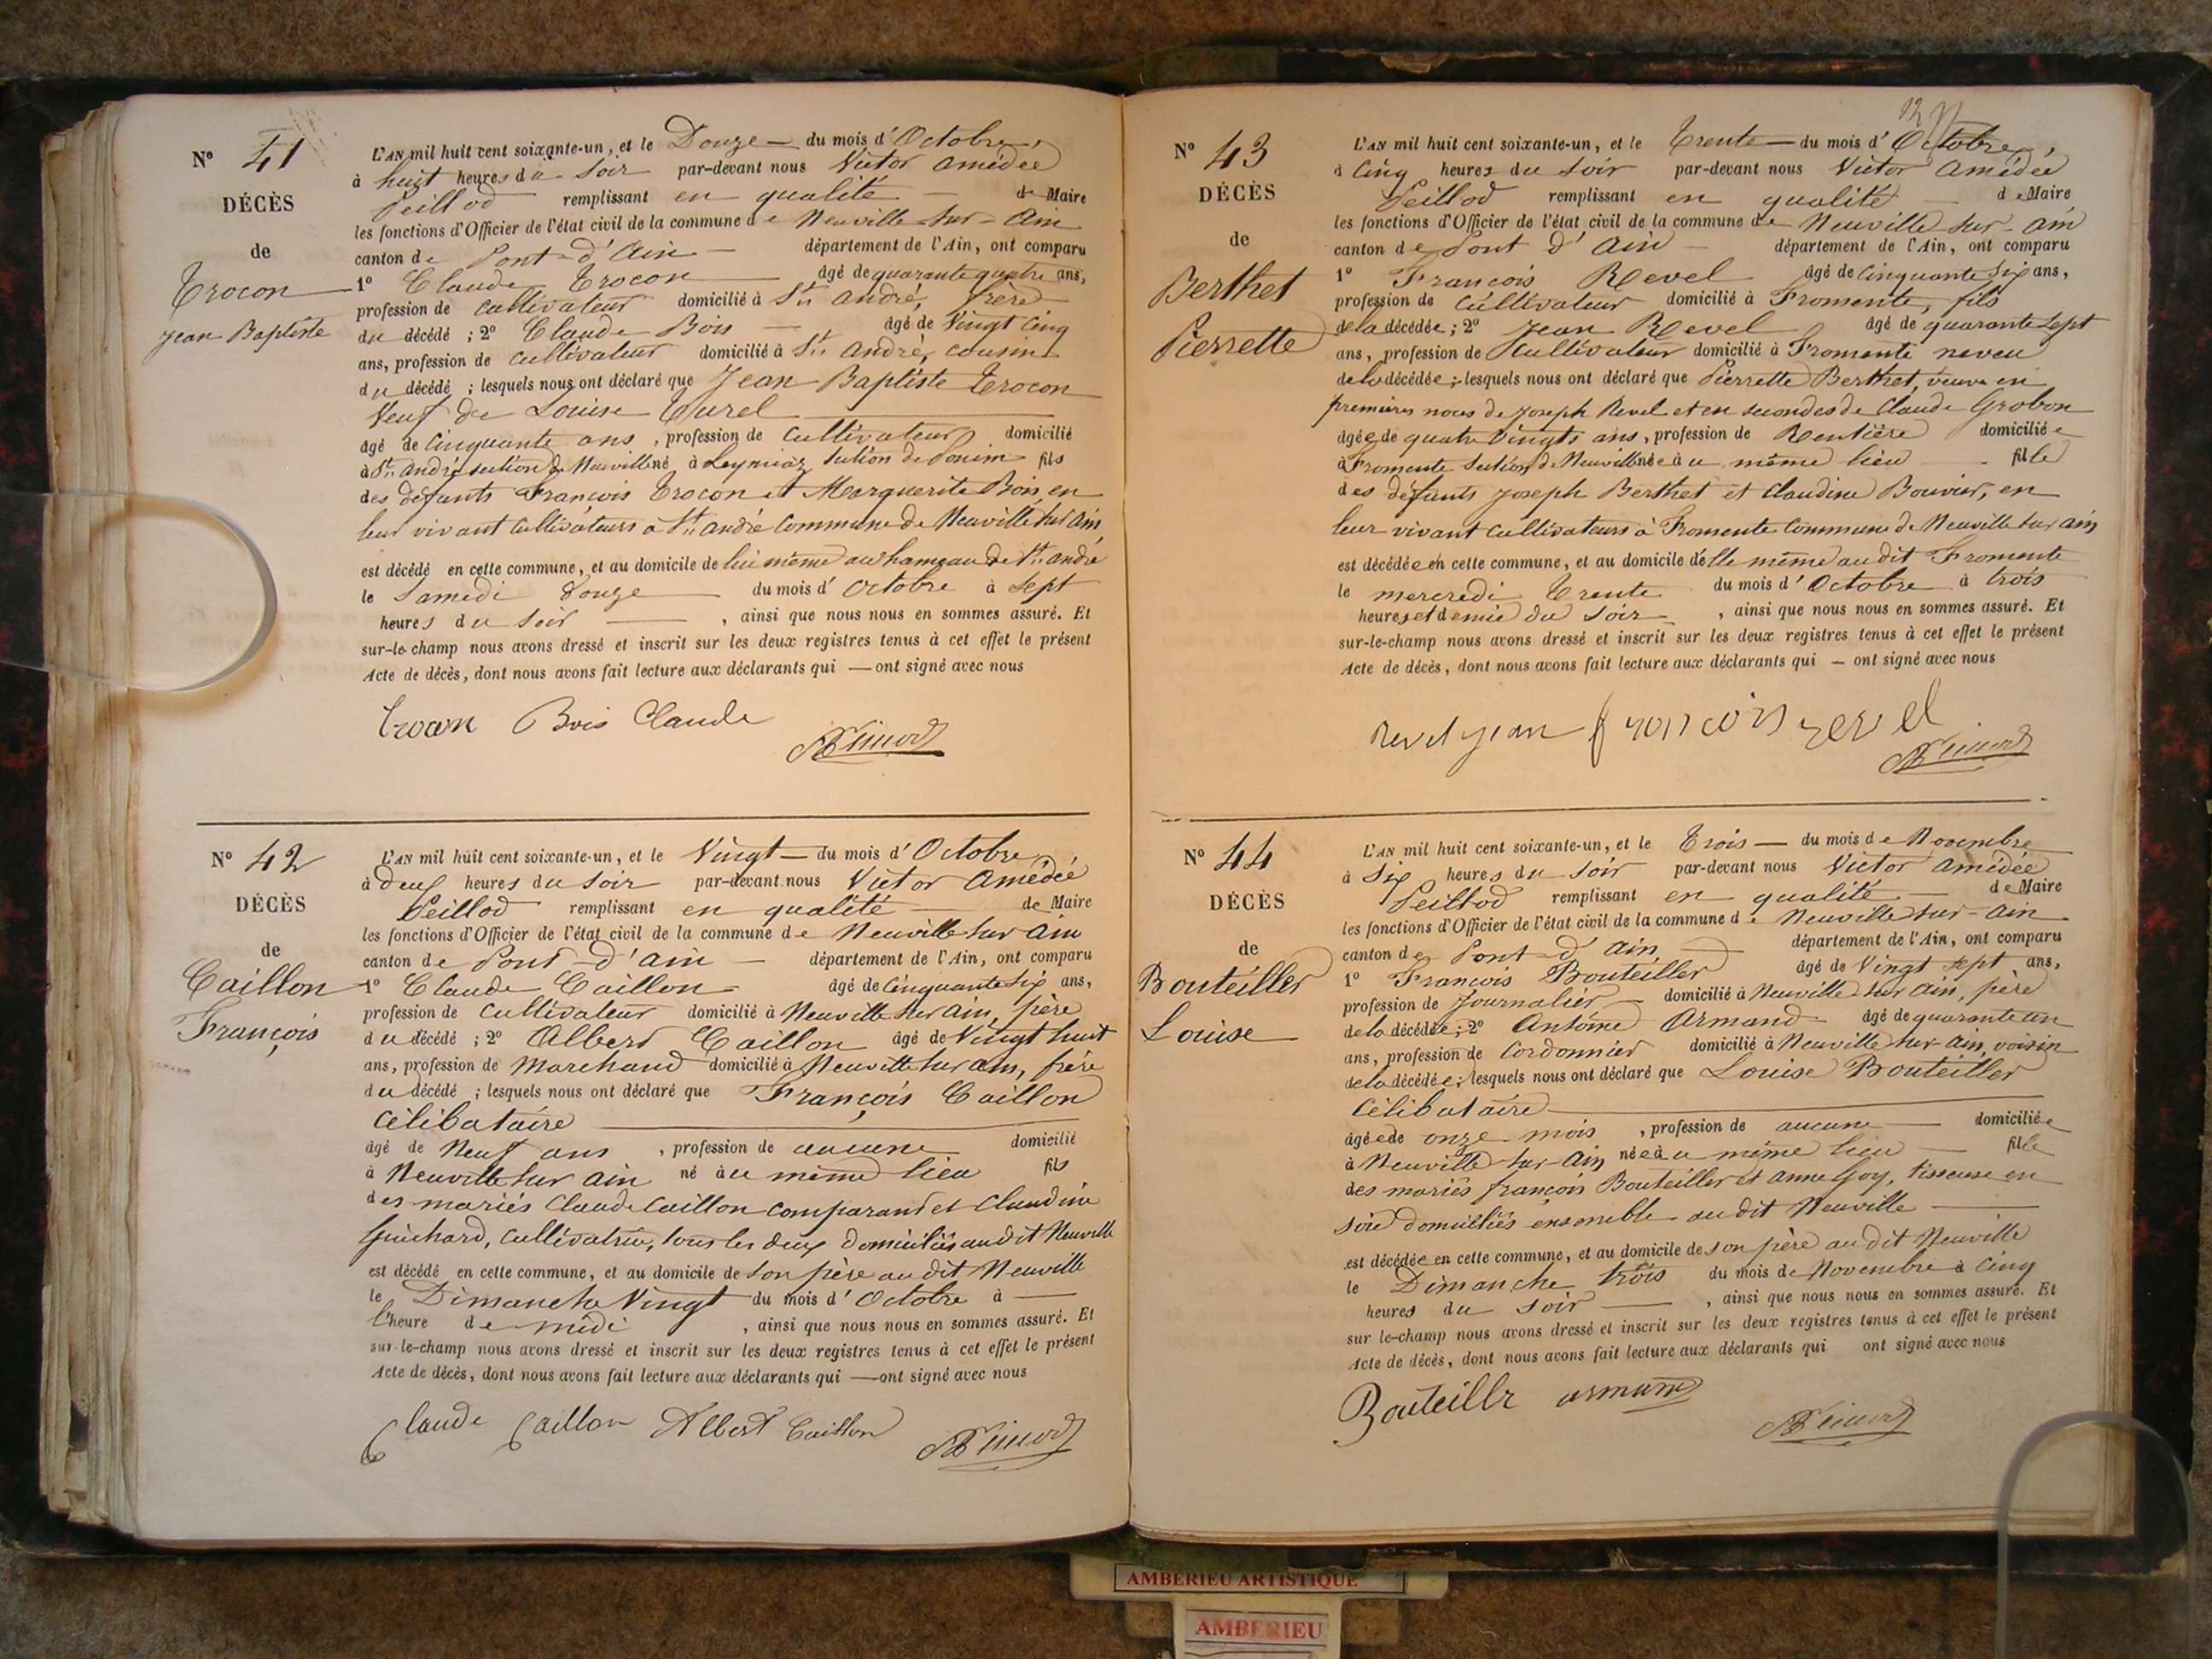 N° 41
DÉCÈS
de
Trocon
Jean Baptiste
L'AN mil huit cent soixante-un, et le Douze — du mois d'Octobre,
à huit heures du Soir par-devant nous Victor Amédée
Peillod remplissant en qualité — de Maire
les fonctions d'Officier de l'état civil de la commune de Neuville sur-Ain
canton de Pont-d'Ain — département de l'Ain, ont comparu
1° Claude Trocon âgé de quarante quatre ans,
profession de Cultivateur domicilié à St André, frère
du décédé ; 2° Claude Bois — âgé de Vingt Cinq
ans, profession de Cultivateur domicilié à St André, cousin
du décédé ; lesquels nous ont déclaré que Jean Baptiste Trocon
Veuf de Louise Turel
âgé de Cinquante ans, profession de Cultivateur domicilié
à St André section de Neuville né à Leymiaz section de Poncin fils
des défunts François Trocon et Marguerite Bois, en
leur vivant Cultivateurs à St André Commune de Neuville sur Ain
est décédé en cette commune, et au domicile de lui même au hameau de St André
le Samedi Douze — du mois d'Octobre à Sept
heures du Soir —, ainsi que nous nous en sommes assuré. Et
sur-le-champ nous avons dressé et inscrit sur les deux registres tenus à cet effet le présent
Acte de décès, dont nous avons fait lecture aux déclarants qui — ont signé avec nous
Trocon Bois Claude
N° 42
DÉCÈS
de
Caillon
François
L'AN mil huit cent soixante-un, et le Vingt — du mois d'Octobre,
à deux heures du Soir par-devant nous Victor Amédée
Peillod remplissant en qualité — de Maire
les fonctions d'Officier de l'état civil de la commune de Neuville sur Ain
canton de Pont-d'Ain — département de l'Ain, ont comparu
1° Claude Caillon âgé de Cinquante Six ans,
profession de Cultivateur domicilié à Neuville sur Ain, père
du décédé ; 2° Albert Caillon âgé de Vingt huit
ans, profession de Marchand domicilié à Neuville sur Ain, frère
du décédé ; lesquels nous ont déclaré que François Caillon
Célibataire
âgé de Neuf ans, profession de aucune domicilié
à Neuville sur Ain né au même lieu fils
des mariés Claude Caillon comparant et Claudine
Guichard, Cultivatrice, tous les deux domiciliés audit Neuville
est décédé en cette commune, et au domicile de son père audit Neuville
le Dimanche Vingt du mois d'Octobre à —
l'heure de midi, ainsi que nous nous en sommes assuré. Et
sur-le-champ nous avons dressé et inscrit sur les deux registres tenus à cet effet le présent
Acte de décès, dont nous avons fait lecture aux déclarants qui — ont signé avec nous
Claude Caillon Albert Caillon
N° 43
DÉCÈS
de
Berthet
Pierrette
L'AN mil huit cent soixante-un, et le Trente — du mois d'Octobre,
à Cinq heures du Soir par-devant nous Victor Amédée
Peillod remplissant en qualité — de Maire
les fonctions d'Officier de l'état civil de la commune de Neuville sur-Ain
canton de Pont d'Ain — département de l'Ain, ont comparu
1° François Revel âgé de Cinquante Six ans,
profession de Cultivateur domicilié à Fromente, fils
de la décédée ; 2° Jean Revel âgé de quarante sept
ans, profession de Cultivateur domicilié à Fromente neveu
de la décédée ; lesquels nous ont déclaré que Pierrette Berthet, veuve en
premières noces de Joseph Revel et en secondes de Claude Grobon
âgée de quatre Vingts ans, profession de Rentière domiciliée
à Fromente Section de Neuville née au même lieu — fille
des défunts Joseph Berthet et Claudine Bouvier, en
leur vivant Cultivateurs à Fromente Commune de Neuville sur Ain
est décédée en cette commune, et au domicile d'elle même audit Fromente
le mercredi Trente du mois d'Octobre à trois
heures et demie du Soir, ainsi que nous nous en sommes assuré. Et
sur-le-champ nous avons dressé et inscrit sur les deux registres tenus à cet effet le présent
Acte de décès, dont nous avons fait lecture aux déclarants qui — ont signé avec nous
Revel jean françois revel
N° 44
DÉCÈS
de
Bouteiller
Louise
L'AN mil huit cent soixante-un, et le Trois — du mois de Novembre
à Six heures du Soir par-devant nous Victor Amédée
Peillod remplissant en qualité — de Maire
les fonctions d'Officier de l'état civil de la commune de Neuville sur-Ain
canton de Pont-d'Ain, — département de l'Ain, ont comparu
1° François Bouteiller âgé de Vingt sept ans,
profession de Journalier — domicilié à Neuville sur Ain, père
de la décédée ; 2° Antoine Armand âgé de quarante un
ans, profession de Cordonnier domicilié à Neuville sur-Ain, voisin
de la décédée ; lesquels nous ont déclaré que Louise Bouteiller
Célibataire
âgée de onze mois, profession de aucune — domiciliée
à Neuville sur-Ain née au même lieu — fille
des mariés françois Bouteiller et Anne Goy, tisseuse en
soie domiciliés ensemble audit Neuville —
est décédée en cette commune, et au domicile de son père audit Neuville
le Dimanche trois du mois de Novembre à Cinq
heures du Soir —, ainsi que nous nous en sommes assuré. Et
sur le-champ nous avons dressé et inscrit sur les deux registres tenus à cet effet le présent
Acte de décès, dont nous avons fait lecture aux déclarants qui ont signé avec nous
Bouteillr armand
AMBERIEU ARTISTIQUE
AMBERIEU